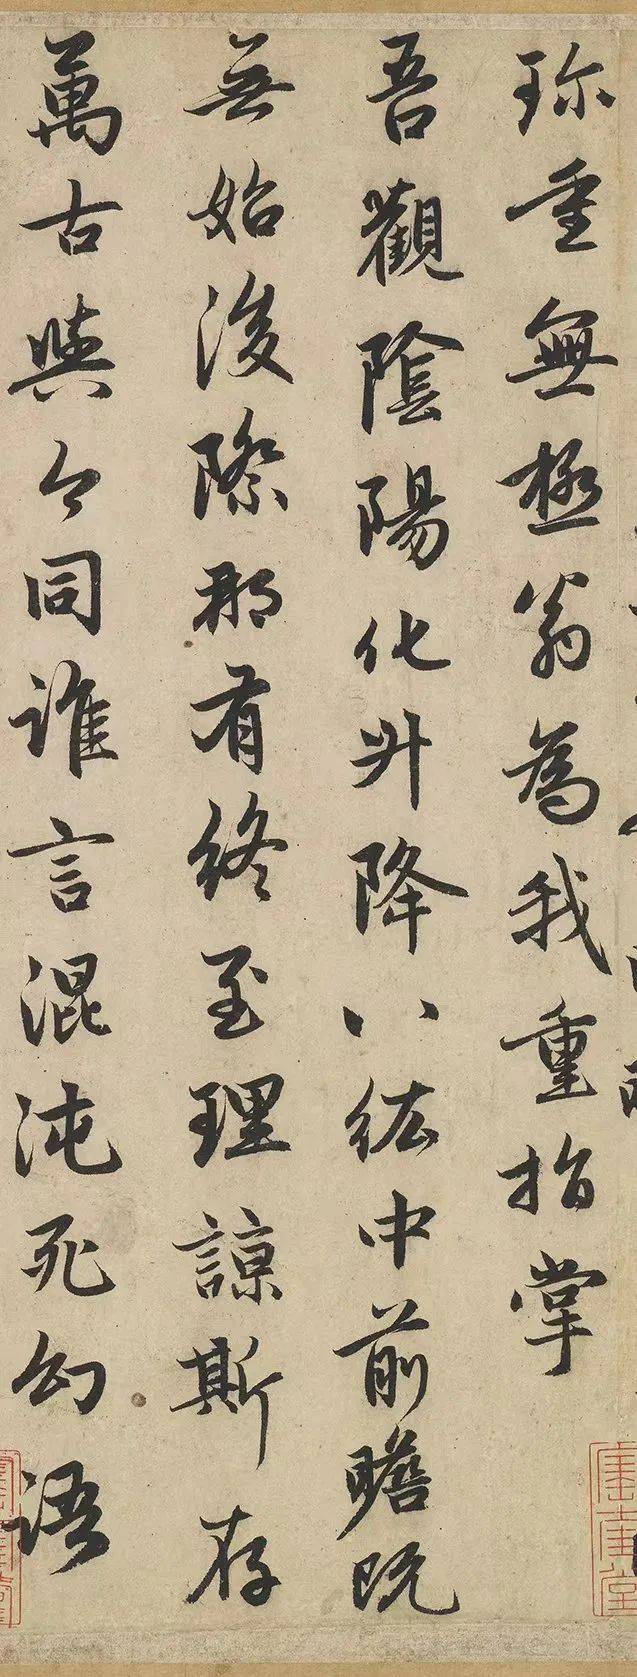 珎重無極翁為我重指掌
吾觀陰陽化升降八紘中前瞻既
無始後際那有終至理諒斯存
萬古與今同誰言混沌死幻語